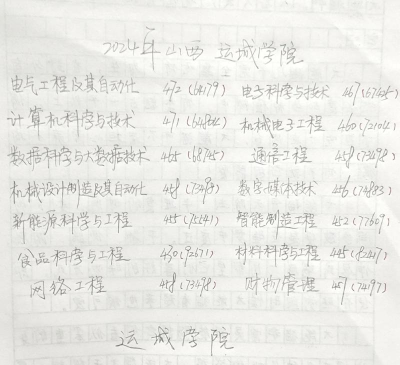 2024年山西 运城学院
电气工程及其自动化 472(64179) 电子科学与技术 467(67425)
计算机科学与技术 471(64804) 机械电子工程 460(72104)
数据科学与大数据技术 465(68745) 通信工程 458(73498)
机械设计制造及其自动化 458(73498) 数字媒体技术 456(74883)
新能源科学与工程 455(75541) 智能制造工程 452(77609)
食品科学与工程 430(92671) 材料科学与工程 445(82447)
网络工程 458(73498) 财物管理 457(74197)
运城学院